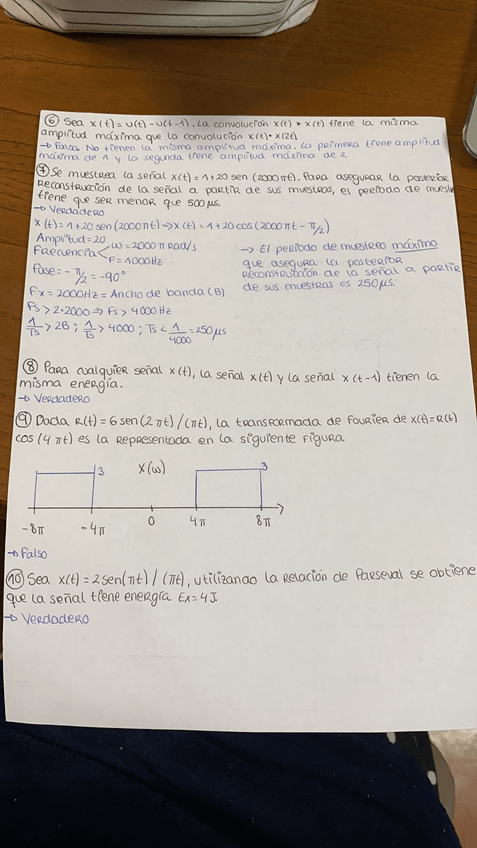 ⑥ Sea x(t) = u(t) - u(t-1). La convolución x(t) * x(t) tiene la misma
amplitud máxima que la convolución x(t) * x(2t)
→ Falso. No tienen la misma amplitud máxima. La primera tiene amplitud
máxima de 1 y la segunda tiene amplitud máxima de 2.
⑦ Se muestrea la señal x(t) = 1+20 sen (2000πt). Para asegurar la posterior
reconstrucción de la señal a partir de sus muestras, el periodo de
tiene que ser menor que 500 μs.
→ Verdadero
x(t) = 1+20 sen(2000πt) → x(t) = 1+20 cos(2000πt - π/2)
Amplitud = 20
Frecuencia < ω = 2000π rad/s
F = 1000Hz
Fase = -π/2 = -90°
Fx = 2000Hz = Ancho de banda (B)
Fs > 2·2000 ⇒ Fs > 4000 Hz
1/Ts > 2B ; 1/Ts > 4000 ; Ts < 1/4000 = 250 μs
→ El periodo de muestreo máximo
que asegura la posterior
reconstrucción de la señal a partir
de sus muestras es 250 μs.
⑧ Para cualquier señal x(t), la señal x(t) y la señal x(t-1) tienen la
misma energía.
→ Verdadero
⑨ Dada r(t) = 6 sen(2πt)/(πt), la transformada de Fourier de x(t) = r(t)
cos(4πt) es la representada en la siguiente figura.
3 X(ω) 3
-8π -4π 0 4π 8π
→ Falso
⑩ Sea x(t) = 2sen(πt) / (πt), utilizando la relación de Parseval se obtiene
que la señal tiene energía Ex = 4 J.
→ Verdadero